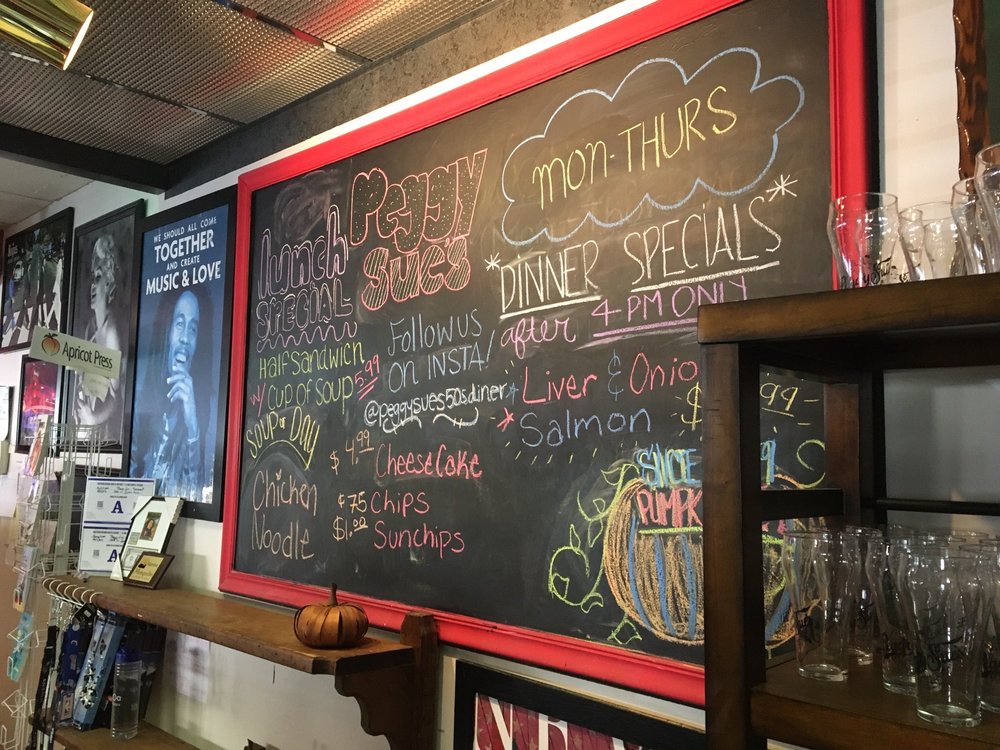 WE SHOULD ALL COME
TOGETHER
AND CREATE
MUSIC & LOVE
Apricot Press
A
A
lunch
SPECIAL
Half Sandwich
w/ CUP OF SOUP 5.99
SOUP of DAY
Chicken
Noodle
Peggy
Sue's
Follow us
on INSTA!
@peggysues50sdiner
$4.99 Cheese Cake
$.75 Chips
$1.00 Sunchips
MON-THURS
*DINNER SPECIALS*
after 4PM ONLY
*Liver & Onio
*Salmon $ 99-
SLICE 9
PUMPK